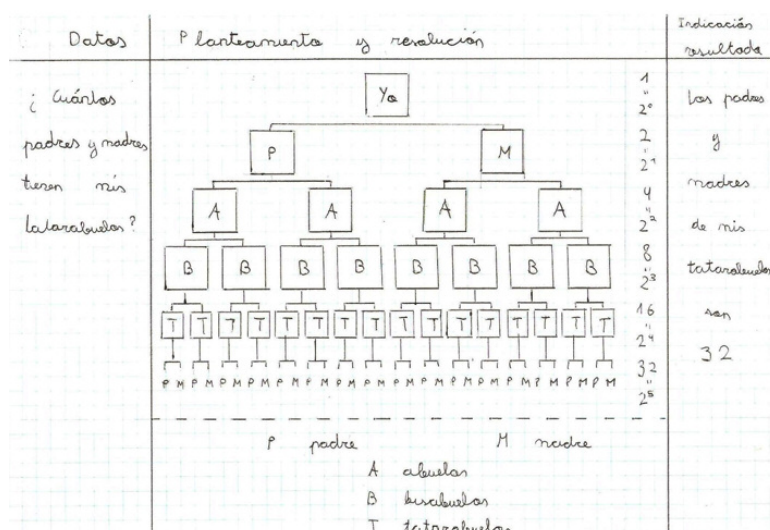 Datos
Planteamiento y resolución
Indicación
resultado
¿Cuántos
padres y madres
tienen mis
tatarabuelos?
Yo
P M
A A A A
B B B B B B B B
T T T T T T T T T T T T T T T T
P M P M P M P M P M P M P M P M P M P M P M P M P M P M P M P M
1
"
2⁰
2
"
2¹
4
"
2²
8
"
2³
16
"
2⁴
32
"
2⁵
Los padres
y
madres
de mis
tatarabuelos
son
32
P padre M madre
A abuelos
B bisabuelos
T tatarabuelos